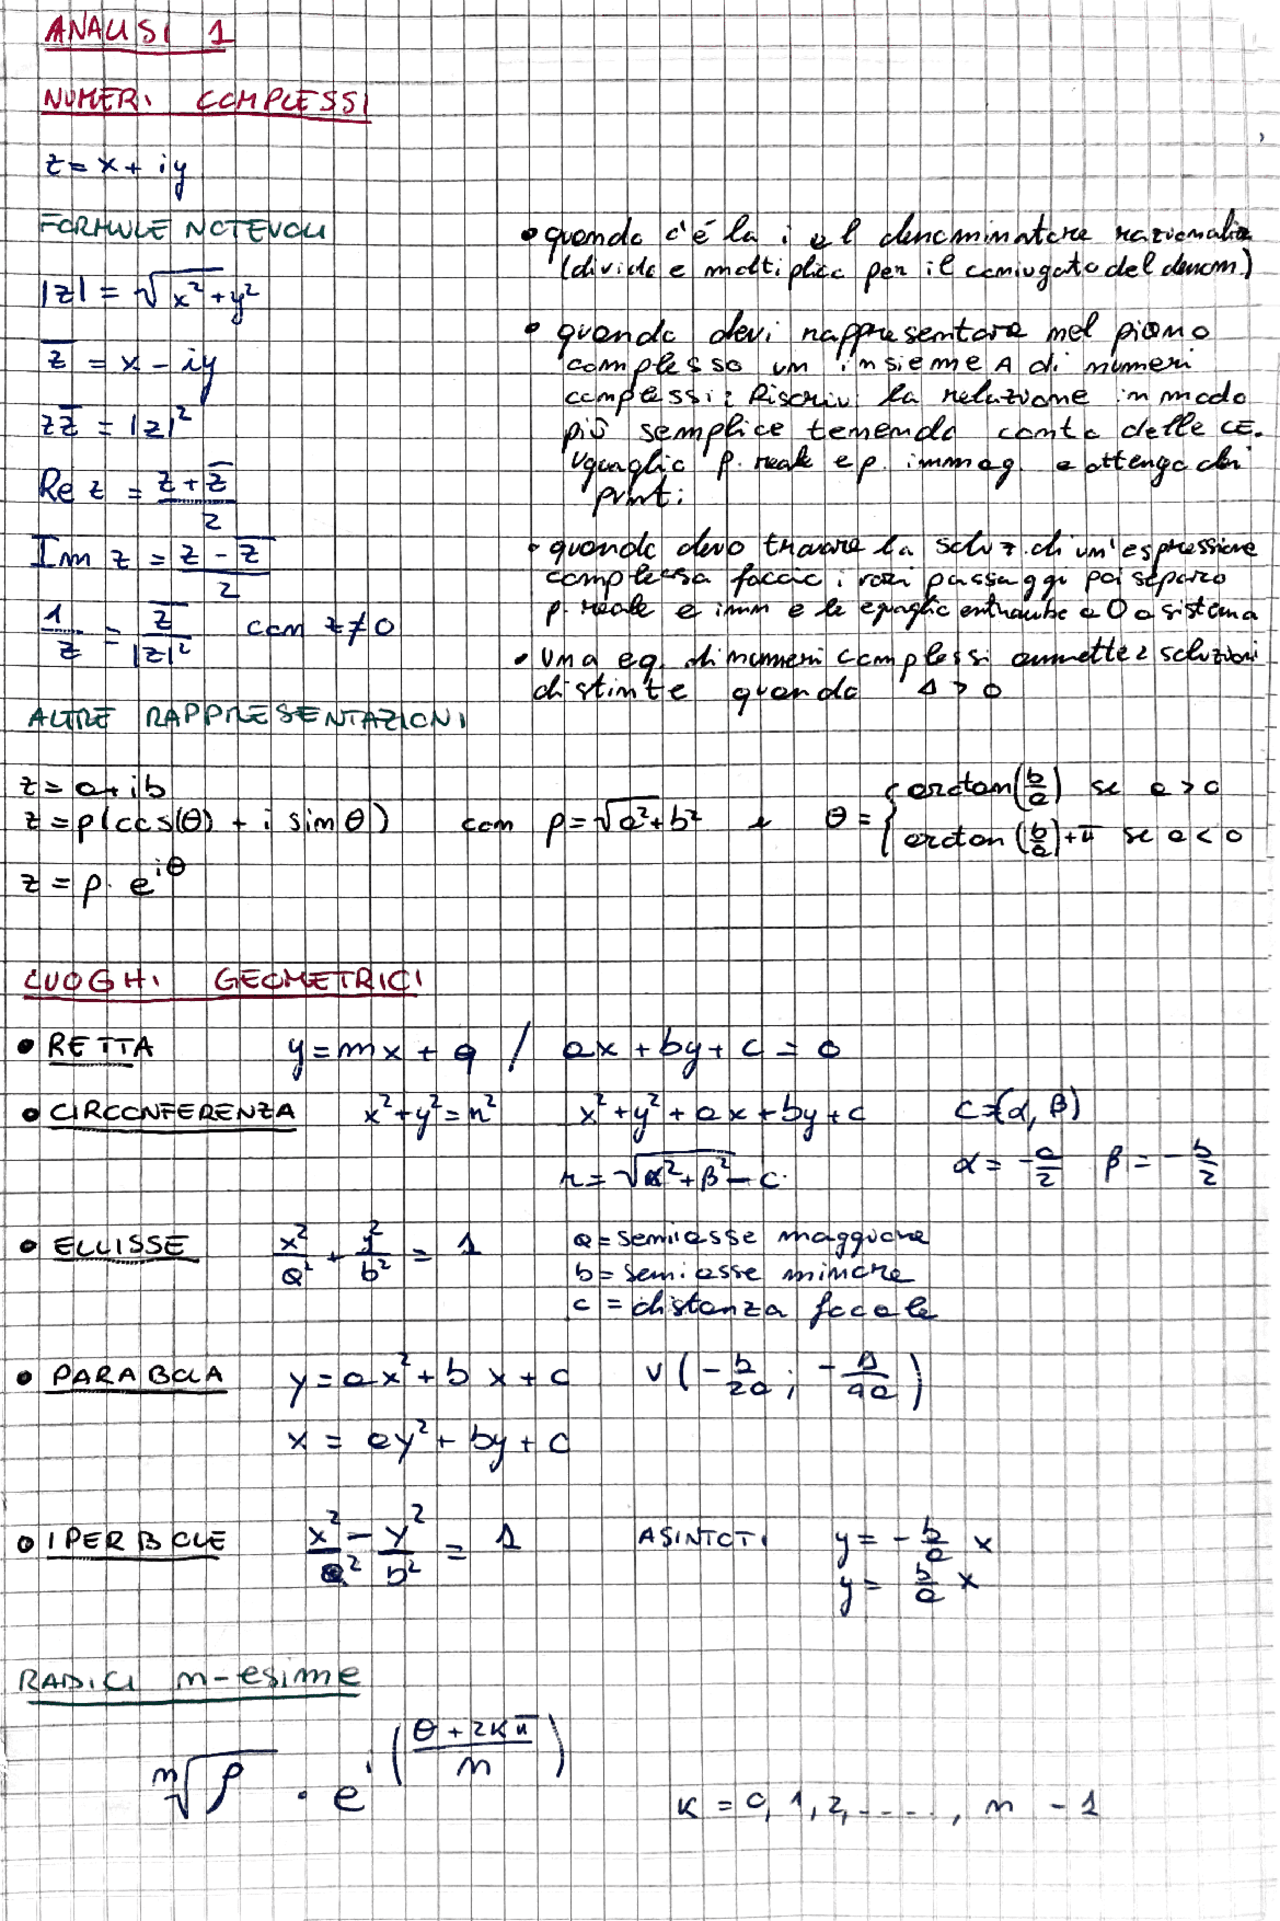 ANALISI 1
NUMERI COMPLESSI
z = x + iy
FORMULE NOTEVOLI
|z| = √(x² + y²)
z̄ = x - iy
z z̄ = |z|²
Re z = (z + z̄)/2
Im z = (z - z̄)/2
1/z = z̄/|z|² con z ≠ 0
• quando c'é la i al denominatore razionalizza
(divide e moltiplica per il coniugato del denom)
• quando devi rappresentare nel piano
complesso un insieme A di numeri
compessi: Riscrivi la relazione in modo
più semplice tenendo conto delle CE.
Uguaglio p. reale e p. immag. e ottengo dei
punti
• quando devo trovare la soluz. di un'espressione
complessa faccio i vari passaggi poi separo
p. reale e imm e le eguaglio entrambe a 0 a sistema
• una eq. di numeri complessi ammette 2 soluzioni
distinte quando Δ > 0
ALTRE RAPPRESENTAZIONI
z = a + ib
z = ρ(cos(θ) + i sin θ) con ρ = √(a² + b²) e θ = { arctan(b/a) se a > 0
arctan(b/a) + π se a < 0
z = ρ · e^(iθ)
LUOGHI GEOMETRICI
• RETTA y = mx + q / ax + by + c = 0
• CIRCONFERENZA x² + y² = r² x² + y² + ax + by + c C = (α, β)
r = √(α² + β² - c) α = -a/2 β = -b/2
• ELLISSE x²/a² + y²/b² = 1 a = semiasse maggiore
b = semiasse minore
c = distanza focale
• PARABOLA y = ax² + bx + c V(-b/2a ; -Δ/4a)
x = ay² + by + c
• IPERBOLE x²/a² - y²/b² = 1 ASINTOTI y = -b/a x
y = b/a x
RADICI n-esime
ⁿ√ρ · e^(i((θ + 2kπ)/n))
k = 0, 1, 2, ....., n - 1